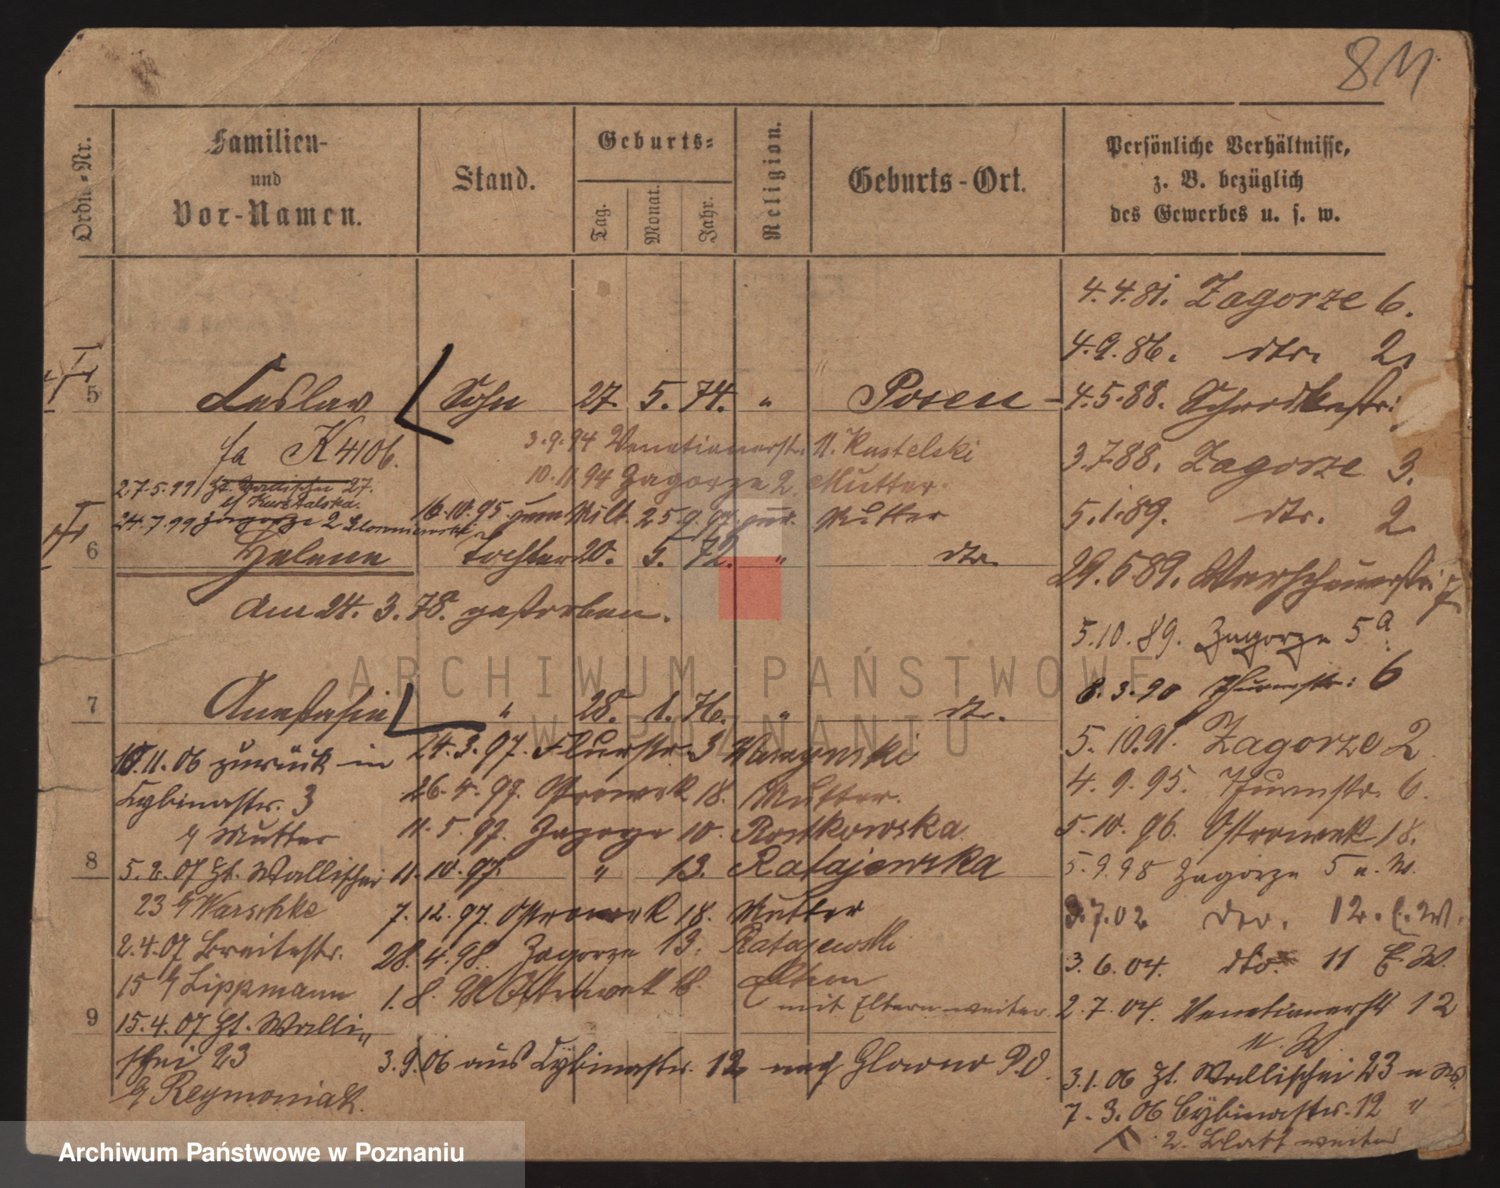 811
Ordn.-Nr.
Familien-
und
Vor-Namen.
Stand.
Geburts-
Tag.
Monat.
Jahr.
Religion.
Geburts-Ort.
Persönliche Verhältnisse,
z. B. bezüglich
des Gewerbes u. s. w.
4.4.81. Zagorze 6.
4.9.86. dto. 2.
5 Ceslav Sohn 27. 5. 74. " Posen
4.5.88.
fa K4106.
3.9.94 Venetianerstr. 11. Kastelski
3.7.88. Zagorze 3.
10.11.94 Zagorze 2. Mutter.
27.5.99
24.7.99 Zagorze 2
16.10.95 zum Milt. 25.9.97 zur. Mutter
5.1.89. dto. 2
6 Helene Tochter 20. 5. 72. " dto.
29.6 89. Warschauerstr.
am 24. 3. 78. gestorben.
5.10.89. Zagorze 5a
8.3.90 Thurmstr. 6
7 Anastasia " 28. 1. 76. " dto.
5.10.91. Zagorze 2
4.9.95. Thurmstr. 6.
5.10.96. Ostrowek 18.
5.9.98 Zagorze 5 u. W.
3.7.02 dto. 12. E.W.
3.6.04. dto. 11 E.W.
2.7.04. Venetianerstr 12
u. W
3.1.06 Ht. Wallischei 23 u W.
7.3.06 Cybinastr. 12 "
2. Blatt weiter
24.3.97. Flurstr. 3
26.4.97. Ostrowek 18. Mutter.
11.5.97. Zagorze 10. Rostkowska
8
11.10.97. " 13. Ratajewska
7.12.97. Ostrowek 18. Mutter
28.4.98. Zagorze 13. Ratajewski
1.8. 98 Ostrowek 18. Eltern
mit Eltern weiter.
9
3.9.06 aus Cybinastr. 12 nach Glowno P.O.
10.11.06 zurück in
Cybinastr. 3
b/ Mutter
5.2.07 Ht. Wallischei
23 b/ Warschke
2.4.07 Breitestr.
15 b/ Lippmann
15.4.07 Ht. Walli-
schei 23
b/ Reymoniak.
ARCHIWUM PAŃSTWOWE
W POZNANIU
Archiwum Państwowe w Poznaniu